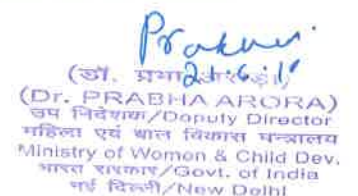 Prabha
(डॉ. प्रभा अरोड़ा)
(Dr. PRABHA ARORA)
उप निदेशक/Deputy Director
महिला एवं बाल विकास मन्त्रालय
Ministry of Women & Child Dev.
भारत सरकार/Govt. of India
नई दिल्ली/New Delhi